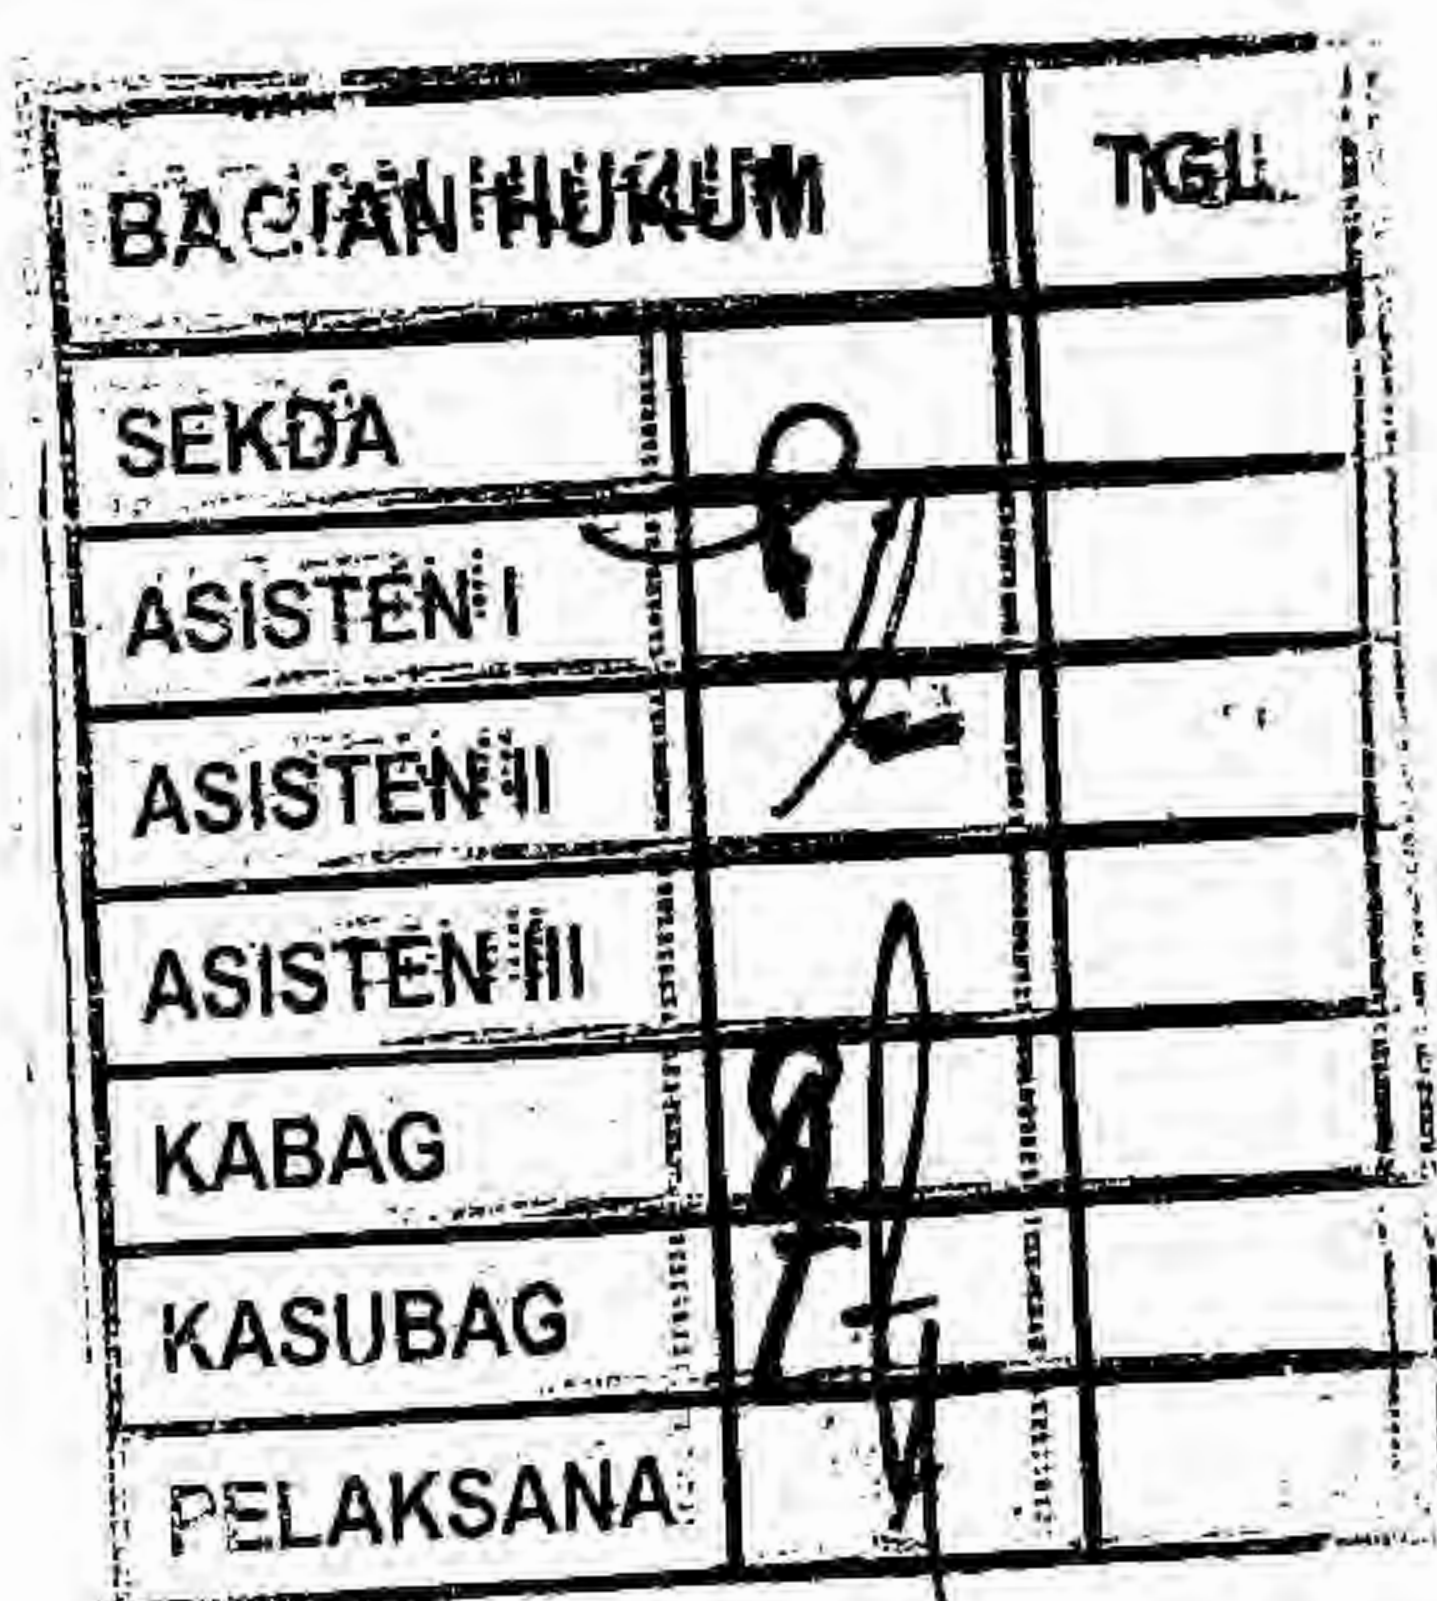 BAGIAN HUKUM TGL.
SEKDA
ASISTEN I
ASISTEN II
ASISTEN III
KABAG
KASUBAG
PELAKSANA